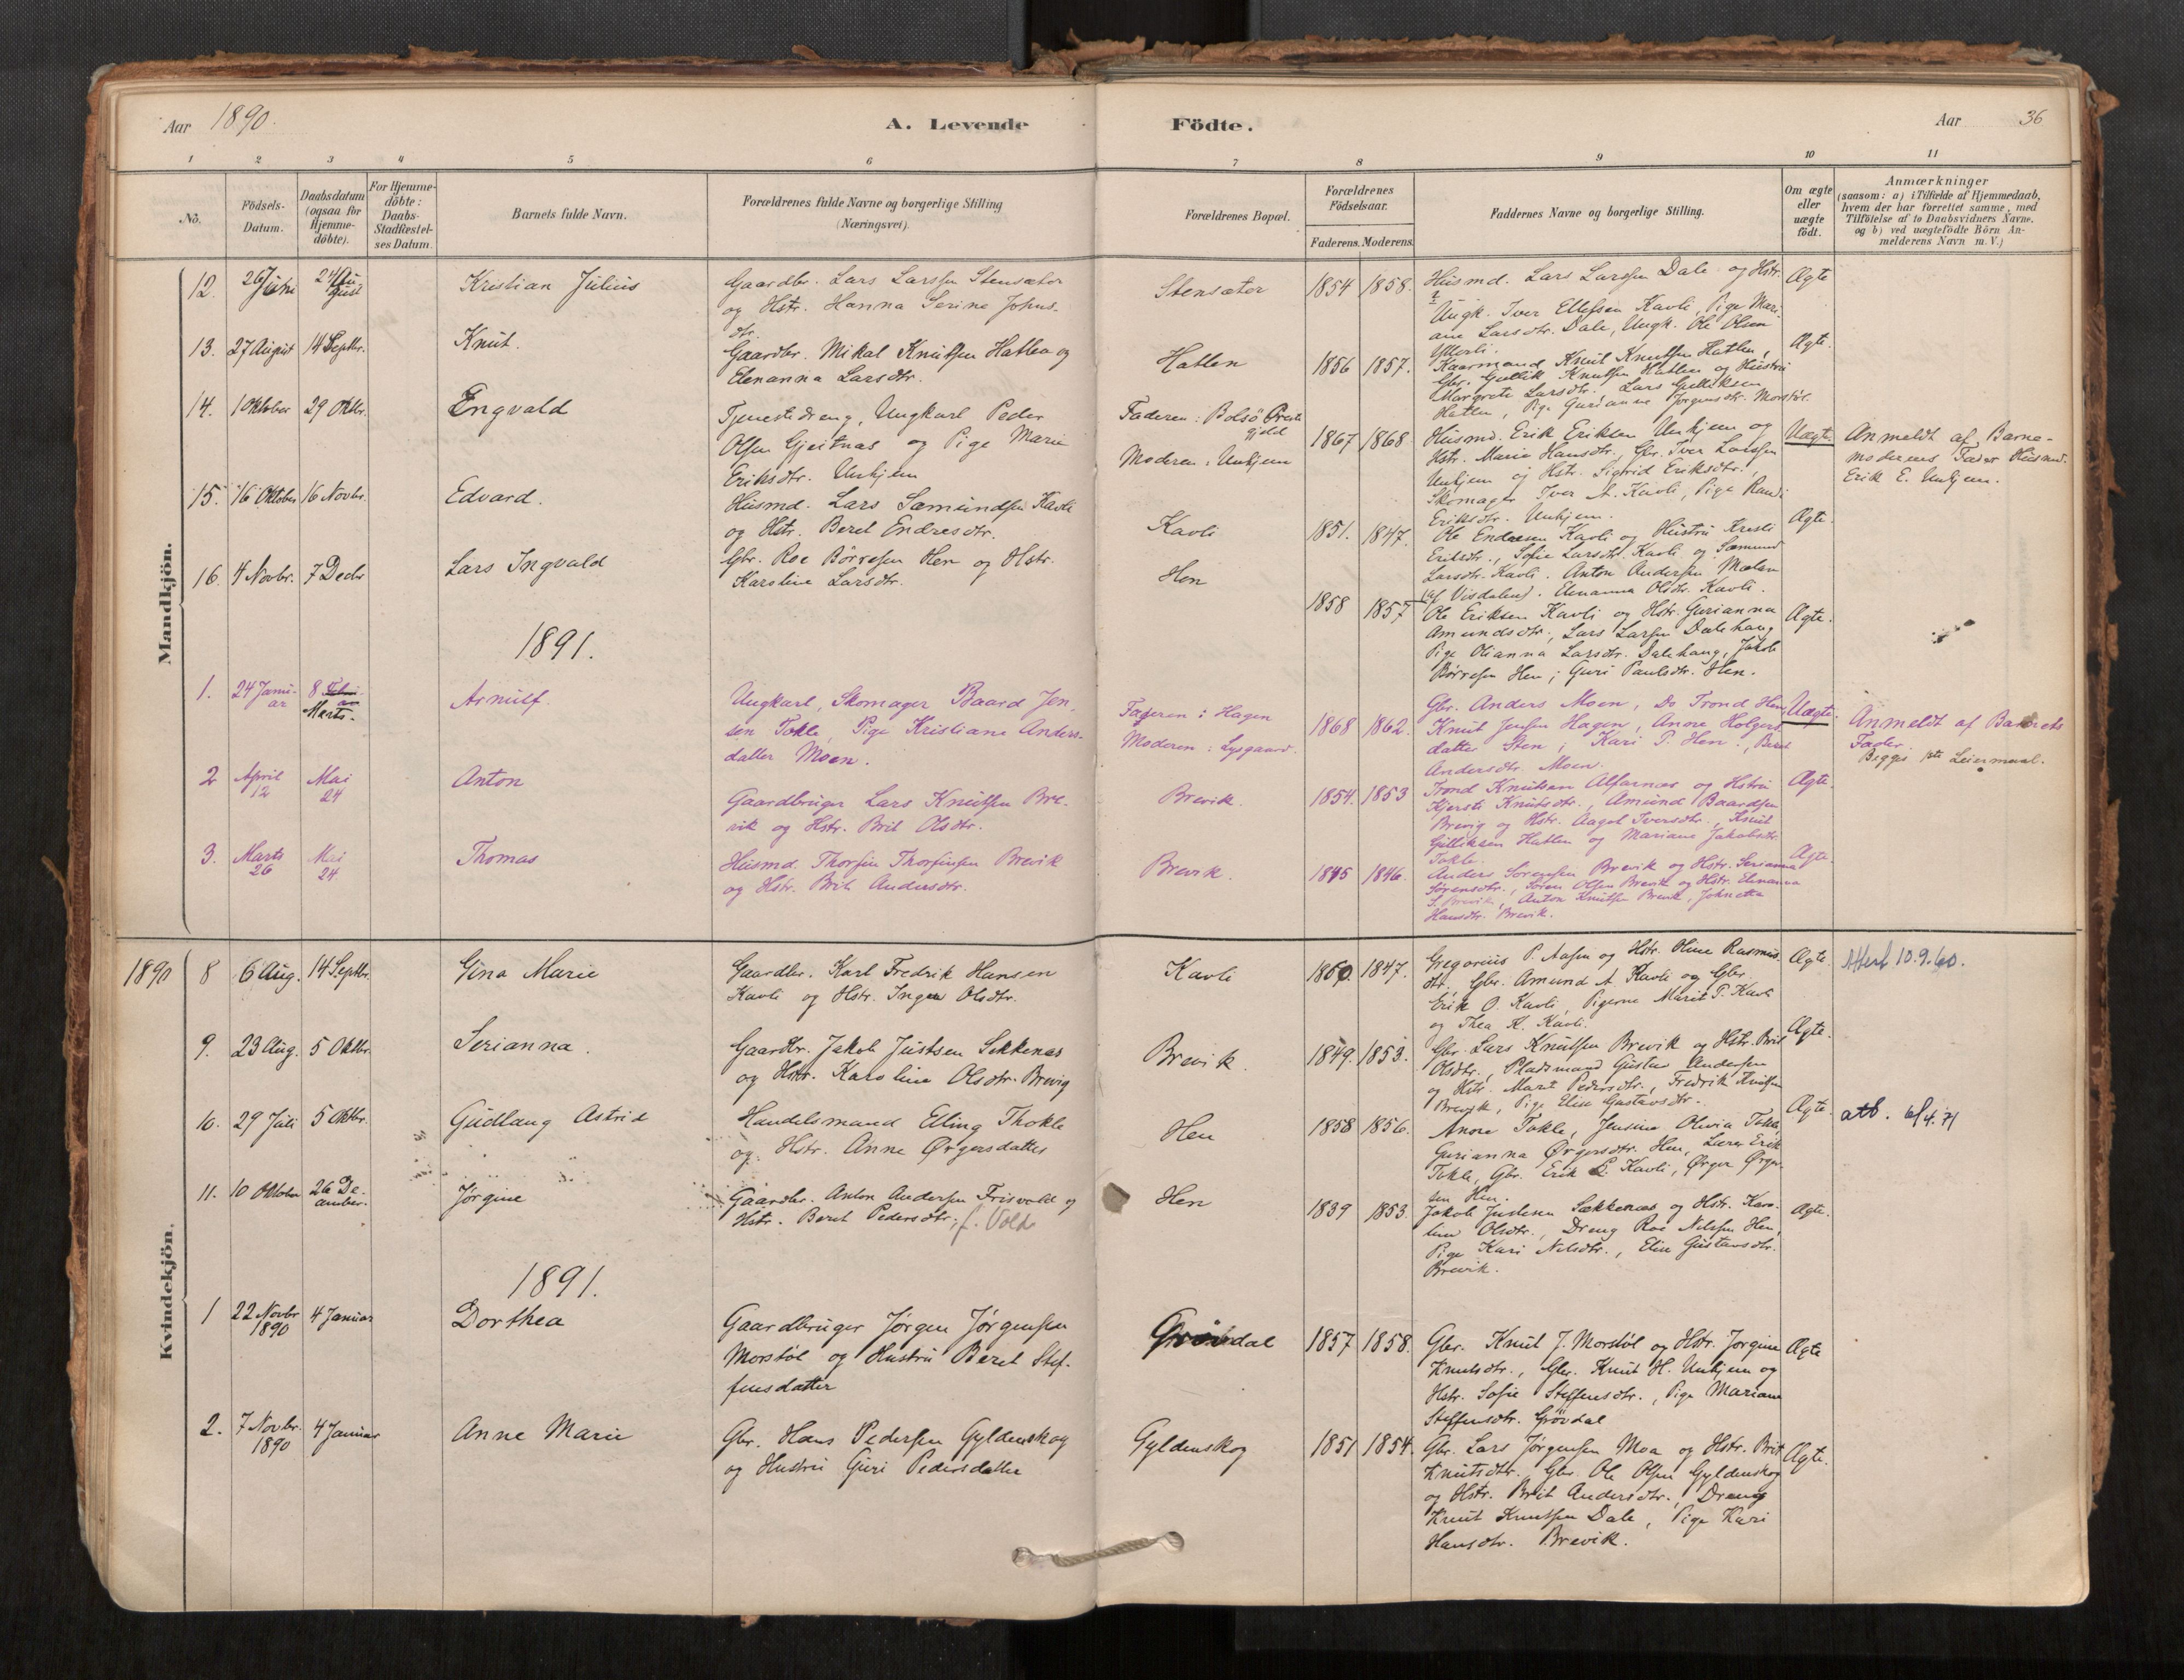 Aar 1890.
A. Levende Födte.
Aar 36
1 2 3 4 5 6 7 8 9 10 11
No.
Födsels-Datum.
Daabsdatum (ogsaa for Hjemme-döbte).
For Hjemme-döbte: Daabs-Stadfæstel-ses Datum.
Barnets fulde Navn.
Forældrenes fulde Navne og borgerlige Stilling (Næringsvei).
Forældrenes Bopæl.
Forældrenes Födselsaar.
Faderens. Moderens.
Faddernes Navne og borgerlige Stilling.
Om ægte eller uægte födt.
Anmærkninger
(saasom: a) i Tilfælde af Hjemmedaab,
hvem der har forrettet samme, med
Tilföielse af to Daabsvidners Navne,
og b) ved uægtefödte Börn An-
melderens Navn m. V.)
Mandkjön.
12. 26 Juni 24 Au-gust Kristian Julius
Gaardbr. Lars Larssen Stensæter
og Hstr. Hanna Serine Johns-
dtr.
Stensæter 1854 1858.
Husmd. Lars Larssen Dale og Hstr.
Ungk. Iver Ellefsen Kavli, Pige Mari-
ane Larsdtr. Dale, Ungk. Ole Olsen
Ytterli.
Ægte
13. 27 August 14 Septbr. Knut.
Gaardbr. Mikal Knutsen Hatlen og
Elenanna Larsdtr.
Hatlen 1856 1857.
Kaarmand Knut Knutsen Hatlen,
Gbr. Gullik Knutsen Hatlen og Hustru
Margrete Larsdtr. Lars Gulliksen
Hatlen, Pige Gurianne Jørgensdtr. Morstøl.
Ægte.
14. 1 Oktober 29 Oktbr. Engvald
Tjenestedreng, Ungkarl Peder
Olsen Gjeitnes og Pige Marie
Eriksdtr. Unhjem
Faderen: Bolsö Præstegjeld
Moderen: Unhjem
1867 1868
Husmd. Erik Eriksen Unhjem og
Hstr. Marie Hansdtr., Gbr. Iver Larssen
Unhjem og Hstr. Sigrid Eriksdtr.,
Skomager Iver A. Kavli, Pige Randi
Eriksdtr. Unhjem.
Uægte.
Anmeldt af Barne-
moderens Fader Husmd.
Erik E. Unhjem.
15. 16 Oktober 16 Novbr. Edvard.
Husmd. Lars Sæmundsen Kavli
og Hstr. Beret Endresdtr.
Kavli 1851. 1847.
Ole Endresen Kavli og Hustru Kristi
Eriksdtr., Sofie Larsdtr. Kavli og Sæmund
Larsdtr. Kavli. Anton Andersen Mælen
(af Visdalen). Elenanna Olsdtr. Kavli.
Ægte.
16. 4 Novbr. 7 Decbr Lars Ingvald
Gbr. Roe Børresen Hen og Hstr.
Karoline Larsdtr.
Hen 1858 1857
Ole Eriksen Kavli og Hstr. Gurianna
Amundsdtr., Lars Larsen Dalehaug
Pige Olianna Larsdtr. Dalehaug, Jakob
Børresen Hen, Guri Paulsdtr. Hen.
Ægte.
1891.
1. 24 Janu-ar 8 Marts. Arnulf.
Ungkarl, Skomager Baard Jen-
sen Tokle, Pige Kristiane Anders-
datter Moen.
Faderen: Hagen
Moderen: Lysgaard.
1868 1862.
Gbr. Anders Moen, Do Trond Hen
Knut Jensen Hagen, Anore Holgers-
datter Sten, Kari P. Hen, Beret
Andersdtr. Moen.
Uægte.
Anmeldt af Barnets
Fader.
Begges 1ste Leiermaal.
2 April 12 Mai 24 Anton
Gaardbruger Lars Knutsen Bre-
vik og Hstr. Brit Olsdtr.
Brevik. 1854. 1853
Trond Knutsen Alfarnæs og Hstru
Kjersti Knutsdtr., Amund Baardsen
Brevig og Hstr. Aagot Iversdtr., Knut
Gulliksen Hatlen og Mariane Jakobsdtr.
Tokle.
Ægte.
3. Marts 26 Mai 24. Thomas
Husmd. Thorfin Thorfinsen Brevik
og Hstr. Brit Andersdtr.
Brevik. 1845 1846.
Anders Sørensen Brevik og Hstr. Serianna
Sørensdtr., Søren Olsen Brevik og Hstr. Elenanna
S. Brevik, Anton Knutsen Brevik, Johnetta
Hansdtr. Brevik.
Ægte.
Kvindekjön.
1890 8 6 Aug. 14 Septbr. Gina Marie
Gaardbr. Karl Fredrik Hansen
Kavli og Hstr. Inger Olsdtr.
Kavli 1850. 1847.
Gregorius P. Aasen og Hstr. Oline Rasmus-
dtr. Gbr. Amund A. Kavli og Gbr.
Erik O. Kavli, Pigerne Marit P. Kavli
og Thea K. Kavli.
Ægte.
Attest 10.9.60.
9. 23 Aug. 5 Oktbr. Serianna.
Gaardbr. Jakob Justsen Sekkenæs
og Hstr. Karoline Olsdtr. Brevig
Brevik. 1849. 1853.
Gbr. Lars Knutsen Brevik og Hstr. Brit
Olsdtr., Pladsmand Gustav Andersen
og Hstr. Marit Pedersdtr., Fredrik Knutsen
Brevik, Pige Elise Gustavsdtr.
Ægte.
10. 29 Juli 5 Oktbr. Gudlaug Astrid
Handelsmand Elling Thokle
og Hstr. Anne Ørgersdatter
Hen 1858 1856.
Anore Tokle, Jensine Olivia Tokle
Gurianna Ørgersdtr. Hen, Lærer Erik
Tokle, Gbr. Erik P. Kavli, Ørger Ørger-
sen Hen.
Ægte.
att. 6/4.71
11. 10 Oktober 26 De-cember. Jørgine
Gaardbr. Anton Andersen Frisvold og
Hstr. Beret Pedersdtr. f. Vold
Hen 1839 1853.
Jakob Justesen Sækkenæs og Hstr. Karo-
line Olsdtr., Dreng Roe Nilssen Hen,
Pige Kari Nilsdtr., Elise Gustavsdtr.
Brevik.
Ægte.
1891.
1 22 Novbr 1890 4 Januar Dorthea
Gaardbruger Jørgen Jørgensen
Morstøl og Hustru Beret Stef-
fensdatter
Grövdal 1857 1858.
Gbr. Knut J. Morstøl og Hstr. Jørgine
Knutsdtr., Gbr. Knut H. Unhjem og
Hstr. Sofie Steffensdtr., Pige Mariane
Steffensdtr. Grövdal
Ægte
2. 7 Novbr. 1890 4 Januar Anne Marie
Gbr. Hans Pedersen Gyldenskog
og Hustru Guri Pedersdatter
Gyldenskog 1851 1854.
Gbr. Lars Jørgensen Moa og Hstr. Brit
Knutsdtr. Gbr. Ole Olsen Gyldenskog
og Hstr. Brit Andersdtr., Dreng
Knut Knutsen Dale, Pige Kari
Hansdtr. Brevik.
Ægte.